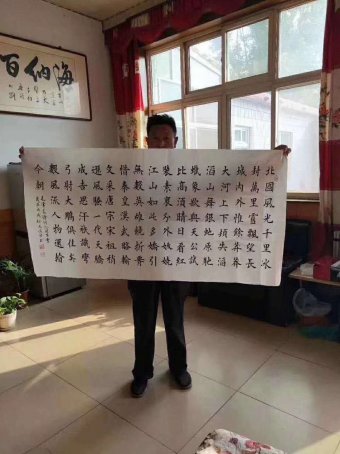 海納百
北國風光千里冰
封萬里雪飄望長
城內外惟餘莽莽
大河上下頓失滔
滔山舞銀蛇原馳
蠟象欲與天公試
比高須晴日看紅
裝素裹分外妖嬈
江山如此多嬌引
無數英雄競折腰
惜秦皇漢武略輸
文采唐宗宋祖稍
遜風騷一代天驕
成吉思汗祇識彎
弓射大鵰俱往矣
數風流人物還看
今朝